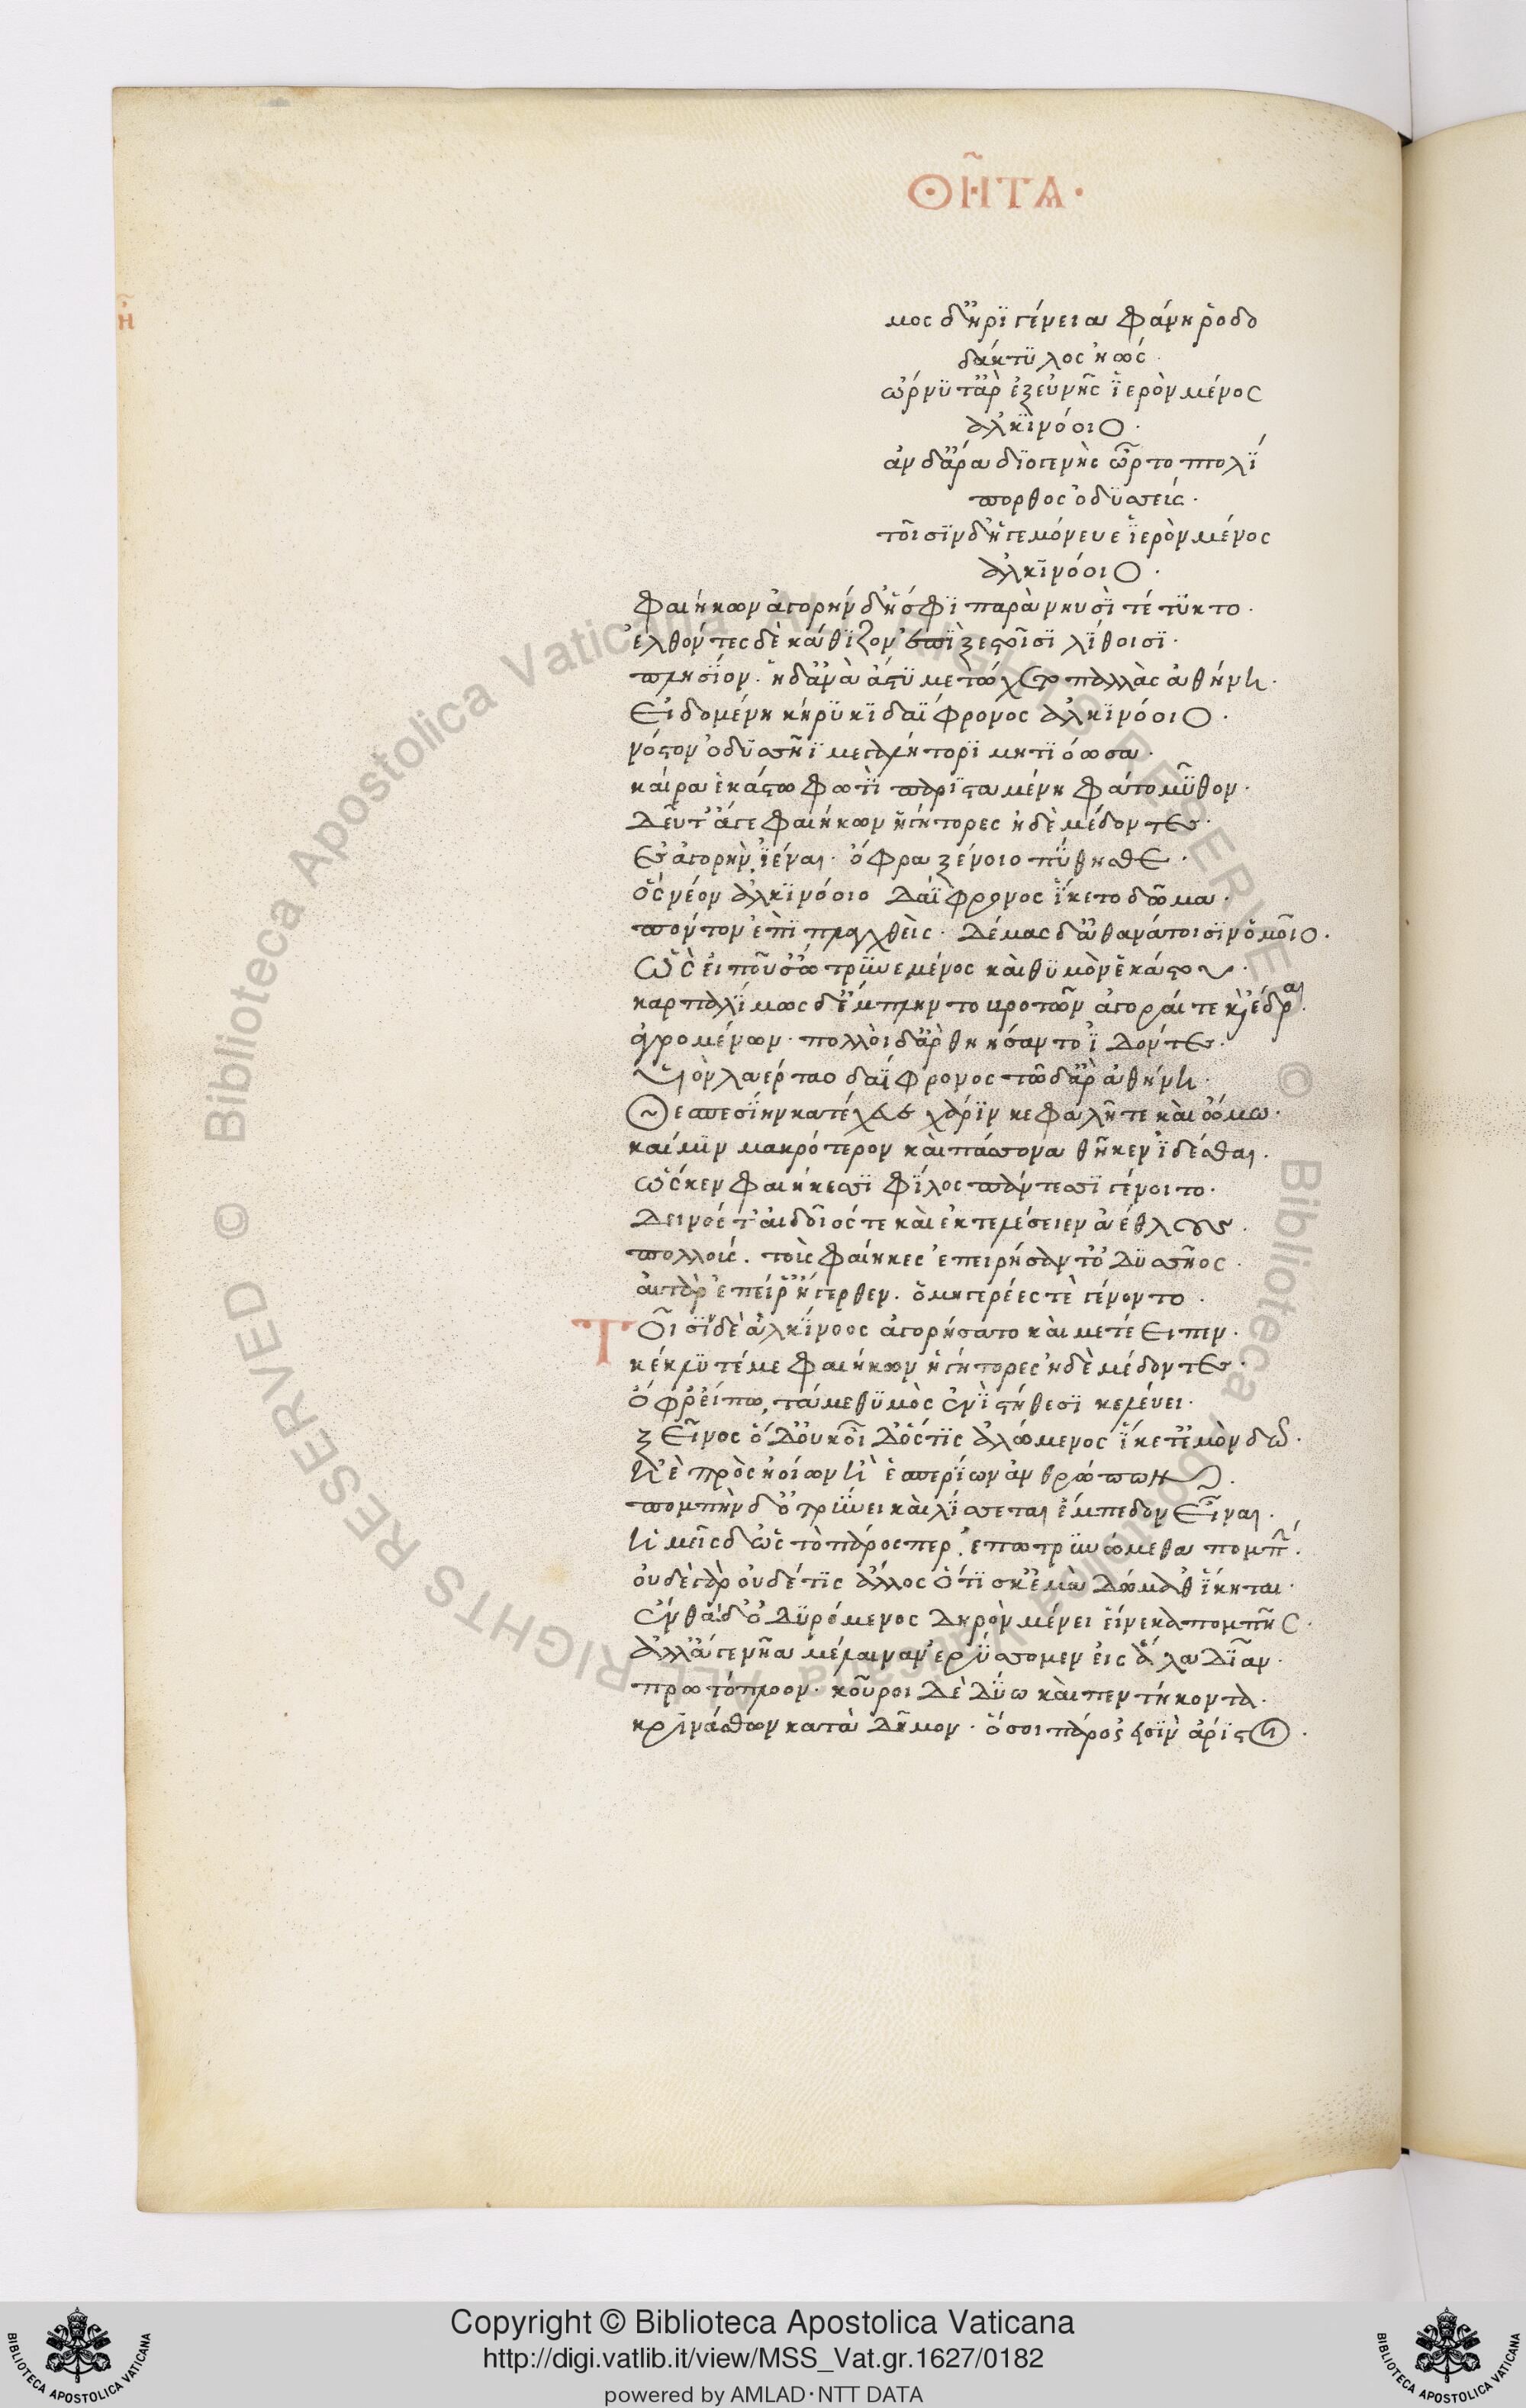 ΘΗ͂ΤΑ·
ῆ
μος δ' ἠριγένεια φάνη ῥοδο
δάκτυλος ἠώς·
ὤρνυτ' ἄρ' ἐξ εὐνῆς ἱερὸν μένος
ἀλκινόοιο·
ἂν δ' ἄρα διογενὴς ὦρτο πτολί
πορθος ὀδυσσεύς·
τοῖσιν δ' ἡγεμόνευε ἱερὸν μένος
ἀλκινόοιο·
φαιήκων ἀγορὴν δ' ἥ σφι παρὰ νηυσὶ τέτυκτο·
ἐλθόντες δὲ κάθιζον ἐπὶ ξεστοῖσι λίθοισι·
πλησίον· ἡ δ' ἀνὰ ἄστυ μετώχετο παλλὰς ἀθήνη·
εἰδομένη κήρυκι δαΐφρονος ἀλκινόοιο·
νόστον ὀδυσσῆϊ μεγαλήτορι μητιόωσα·
καί ρα ἑκάστω φωτὶ παρισταμένη φάτο μῦθον·
δεῦτ' ἄγε φαιήκων ἡγήτορες ἠδὲ μέδοντες·
εἰς ἀγορὴν ἰέναι· ὄφρα ξείνοιο πύθησθε·
ὃς νέον ἀλκινόοιο δαΐφρονος ἵκετο δῶμα·
πόντον ἐπὶ πλαγχθεὶς· δέμας δ' ἀθανάτοισιν ὁμοῖο·
ὣς εἰποῦσ' ὤτρυνε μένος καὶ θυμὸν ἑκάστου·
καρπαλίμως δ' ἔμπληντο βροτῶν ἀγοραί τε καὶ ἕδραι·
ἀγρομένων· πολλοὶ δ' ἄρ θηήσαντο ἰδόντες·
υἱὸν λαέρταο δαΐφρονος τῶ δ' ἄρ ἀθήνη·
θεσπεσίην κατέχευε χάριν κεφαλῆ τε καὶ ὤμω·
καί μιν μακρότερον καὶ πάσσονα θῆκεν ἰδέσθαι·
ὥς κεν φαιήκεσσι φίλος πάντεσσι γένοιτο·
δεινός τ' αἰδοῖός τε καὶ ἐκτελέσειεν ἀέθλους·
πολλούς· τοὺς φαίηκες ἐπειρήσαντ' ὀδυσσῆος·
αὐτὰρ ἐπεί ρ' ἤγερθεν· ὁμηγερέες τὲ γένοντο·
Τοῖσι δὲ ἀλκίνοος ἀγορήσατο καὶ μετέειπεν·
κέκλυτέ με φαιήκων ἡγήτορες ἠδὲ μέδοντες·
ὄφρ' εἴπω, τά με θυμὸς ἐνὶ στήθεσι κελεύει·
ξεῖνος ὅδ' οὐκ οἶδ' ὅς τις ἀλώμενος ἵκετ' ἐμὸν δῶ·
ἠὲ πρὸς ἠοίων ἢ ἑσπερίων ἀνθρώπων·
πομπὴν δ' ὀτρύνει καὶ λίσσεται ἔμπεδον εἶναι·
ἡμεῖς δ' ὡς τὸ πάρος περ, ἐποτρυνώμεθα πομπήν·
οὐδὲ γὰρ οὐδέ τις ἄλλος ὅτι σκ' ἐμὰ δώμαθ' ἵκηται·
ἐνθάδ' ὀδυρόμενος δηρὸν μένει εἵνεκα πομπῆς·
ἀλλ' ἄγε νῆα μέλαιναν ἐρύσσομεν εἰς ἅλα δῖαν·
πρωτόπλοον· κοῦροι δὲ δύω καὶ πεντήκοντα·
κρινάσθων κατὰ δῆμον· ὅσοι πάρος εἰσὶν ἄριστοι·
Copyright © Biblioteca Apostolica Vaticana
http://digi.vatlib.it/view/MSS_Vat.gr.1627/0182
powered by AMLAD·NTT DATA
BIBLIOTECA APOSTOLICA VATICANA
BIBLIOTECA APOSTOLICA VATICANA
© Biblioteca Apostolica Vaticana ALL RIGHTS RESERVED
© Biblioteca Apostolica Vaticana ALL RIGHTS RESERVED